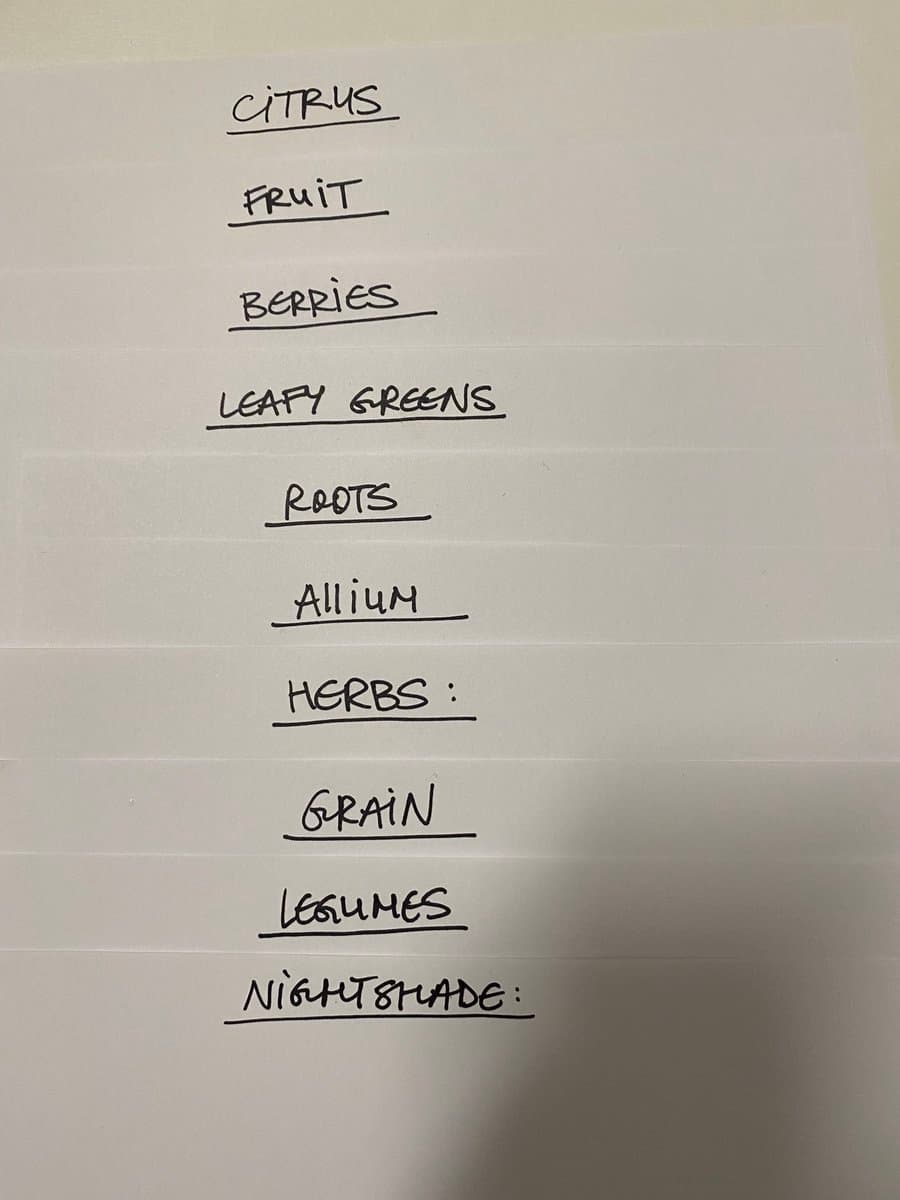 CiTRUS
FRUiT
BERRiES
LEAFY GREENS
ROOTS
AlliUM
HERBS :
GRAiN
LEGUMES
NiGHTSHADE :